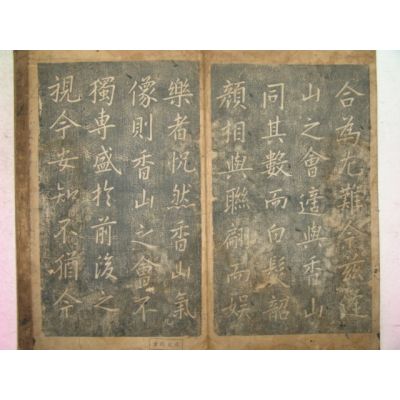 合為尤難今茲
山之會適與香山
同其數而白髮韶
顏相與聯翩而娛
樂者怳然香山氣
像則香山之會不
獨專盛於前後之
視今安知不猶今